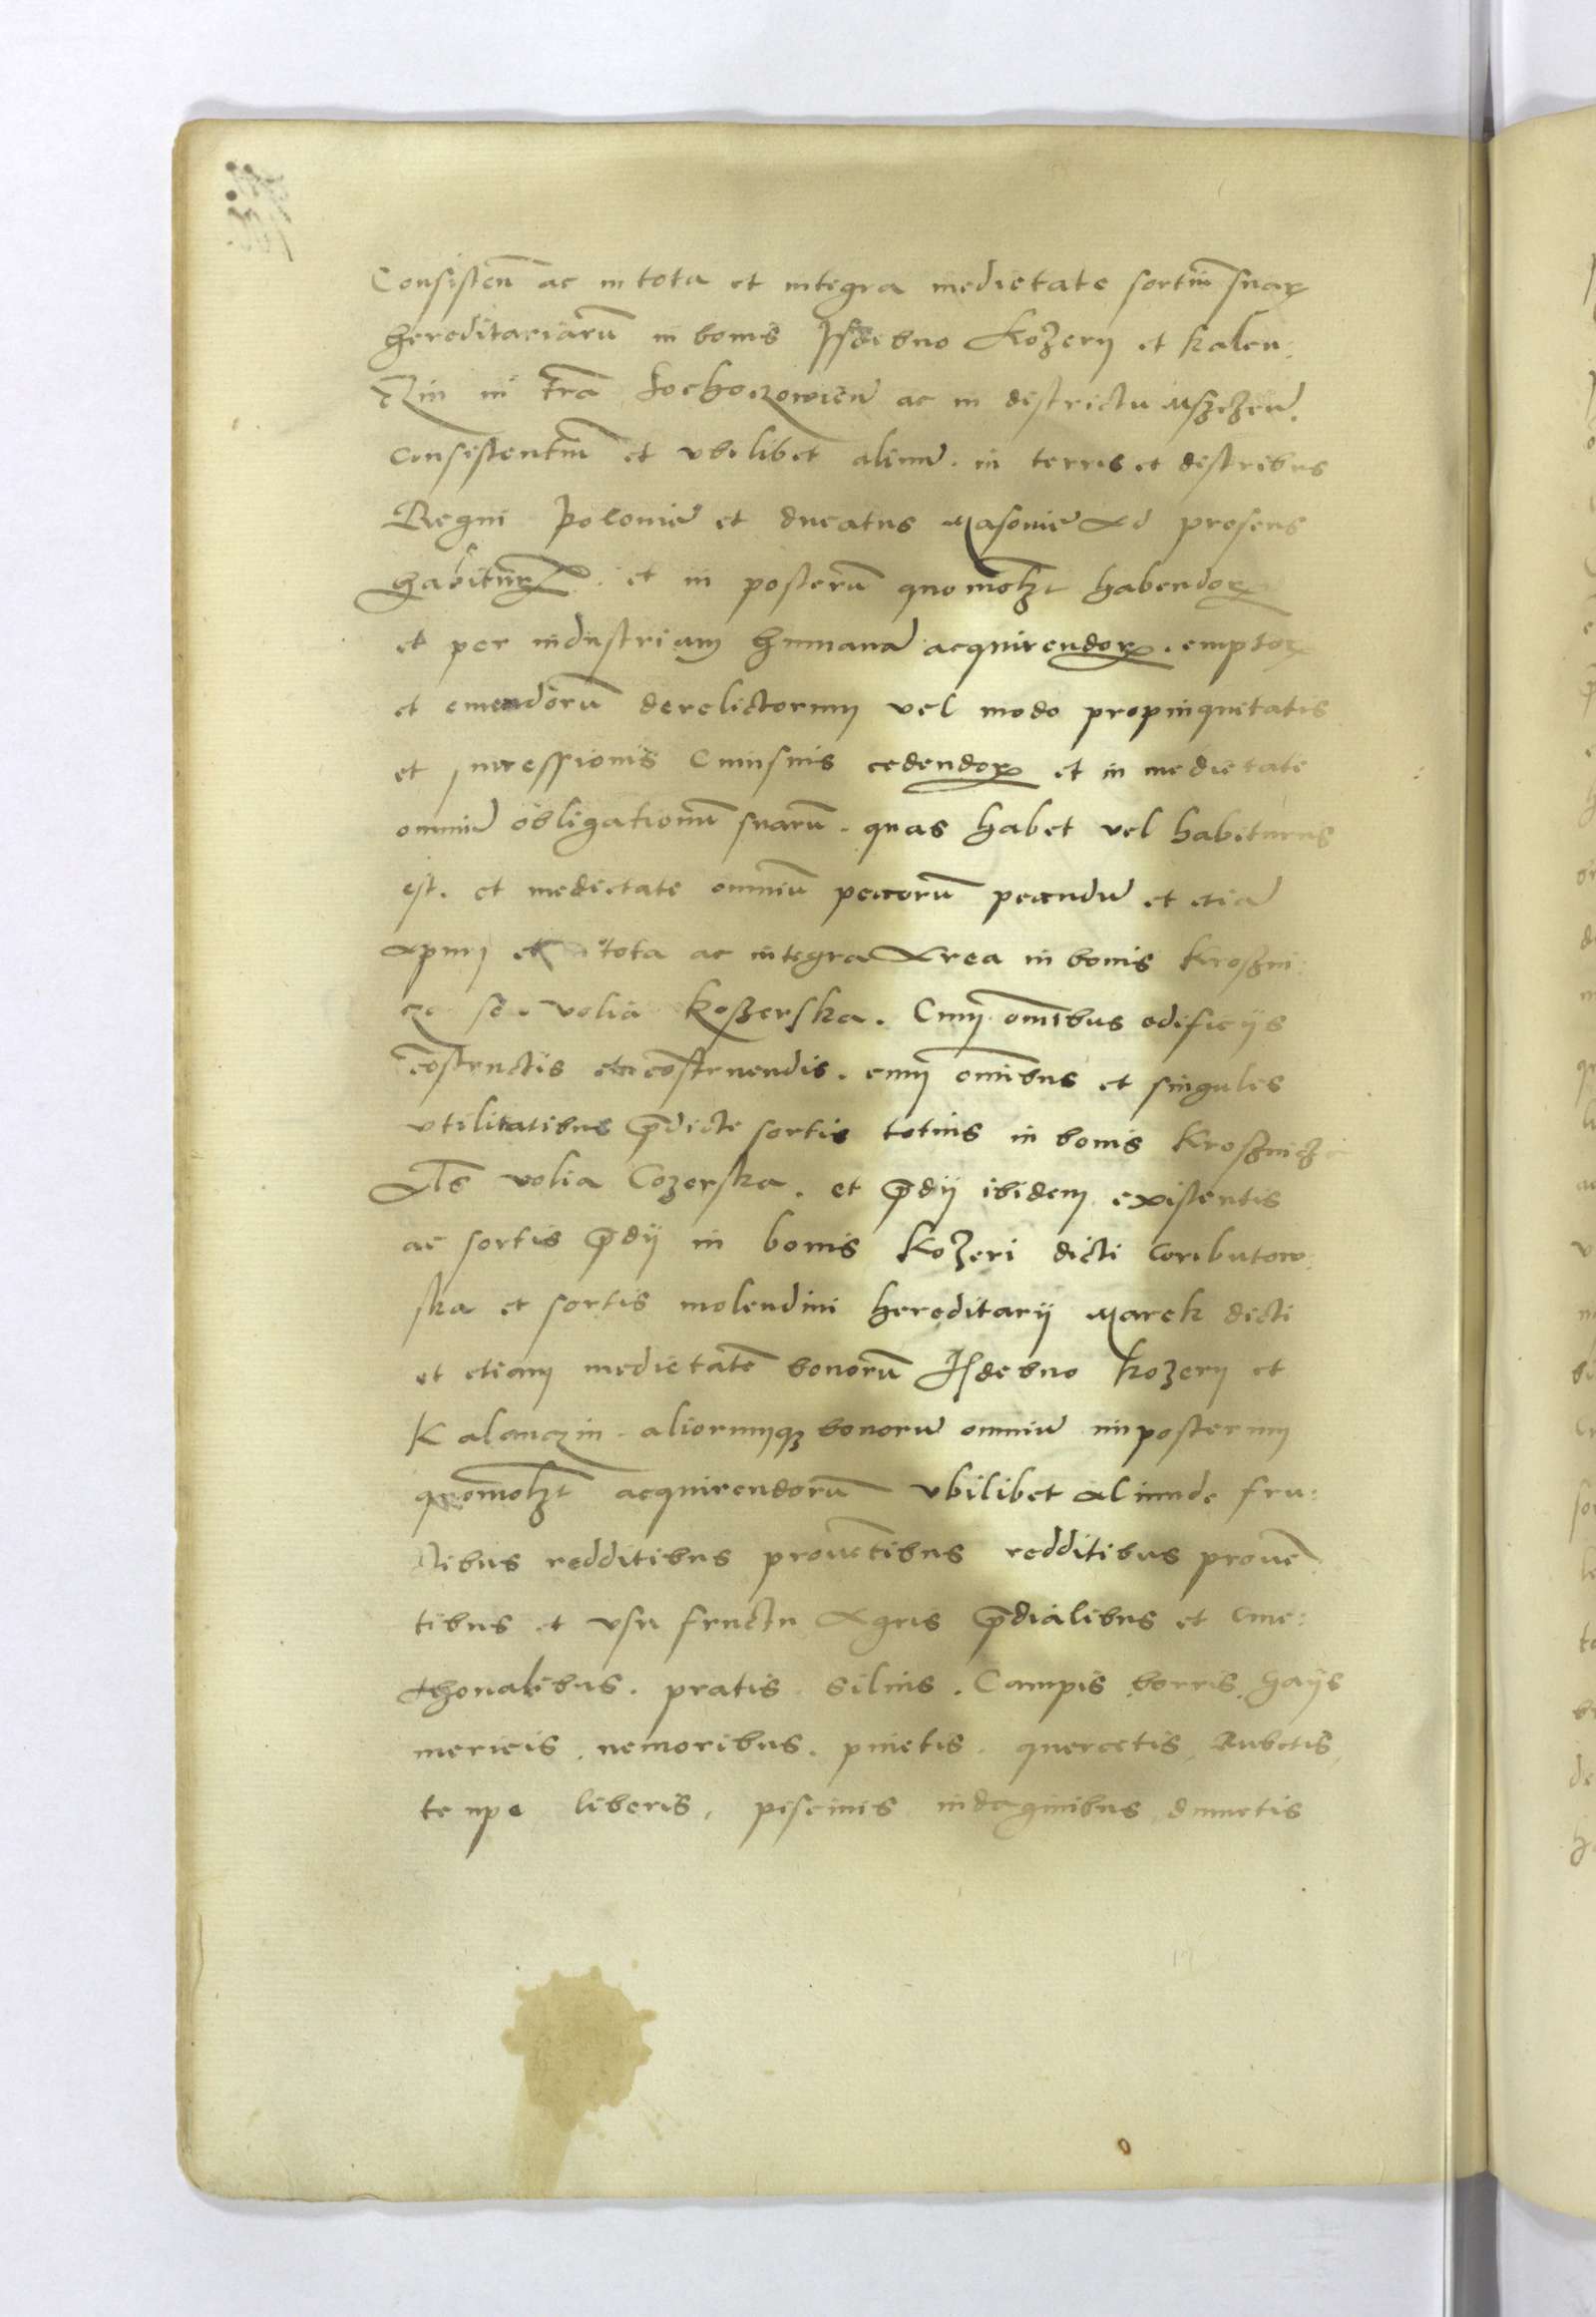 Consisteñ ac in tota et integra medietate sortiũ suarꝝ
hereditariarũ in bonis Isdebno Kozery et kalen:
czin in trã Sochaczowieñ ac in districtu Mszczeñ.
consistentiũ et vbilibet aliuñ. in terris et districtibus
Regni Polonie et ducatus Masovie Ad presens
habiturꝝ. et in posterũ quomolȝt habendorꝝ
et per industriam humanã acquirendorꝝ. emptorꝝ
et emendorũ derelictorum vel modo propinquitatis
et successionis cuiusuis cedendorꝝ et in medietate
omniũ obligationũ suarũ. quas habet vel habiturus
est. et medietate omniũ pecorũ pecudũ et etiã
apum et in tota ac integra Area in bonis Kroszni:
cza seu volia Koszerska. Cum om̃ibus edificijs
cõstructis et cõstruendis. cum om̃ibus et singulis
vtilitatibus p̃dicte sortis totius in bonis Kroszniczi
Al̃s volia Cozerska. et p̃dij ibidem existentis
ac sortis p̃dij in bonis Kozeri dicti Coributow:
ska et sortis molendini hereditarij Marek dicti
et etiam medietatẽ bonorũ Isdebno Kozery et
Kalenczin. aliorumqȝ bonorũ omniũ inposterum
quomolȝt acquirendorũ vbilibet aliunde fru:
ctibus redditibus prouẽtibus redditibus prouẽ:
tibus et vsu fructu Agris p̃dialibus et cme:
thonalibus. pratis. Siluis. Campis borris. hayis
mericis. nemoribus. pinetis. quercetis, Rubetis,
tempe liberis, piscinis indaginibus dumetis